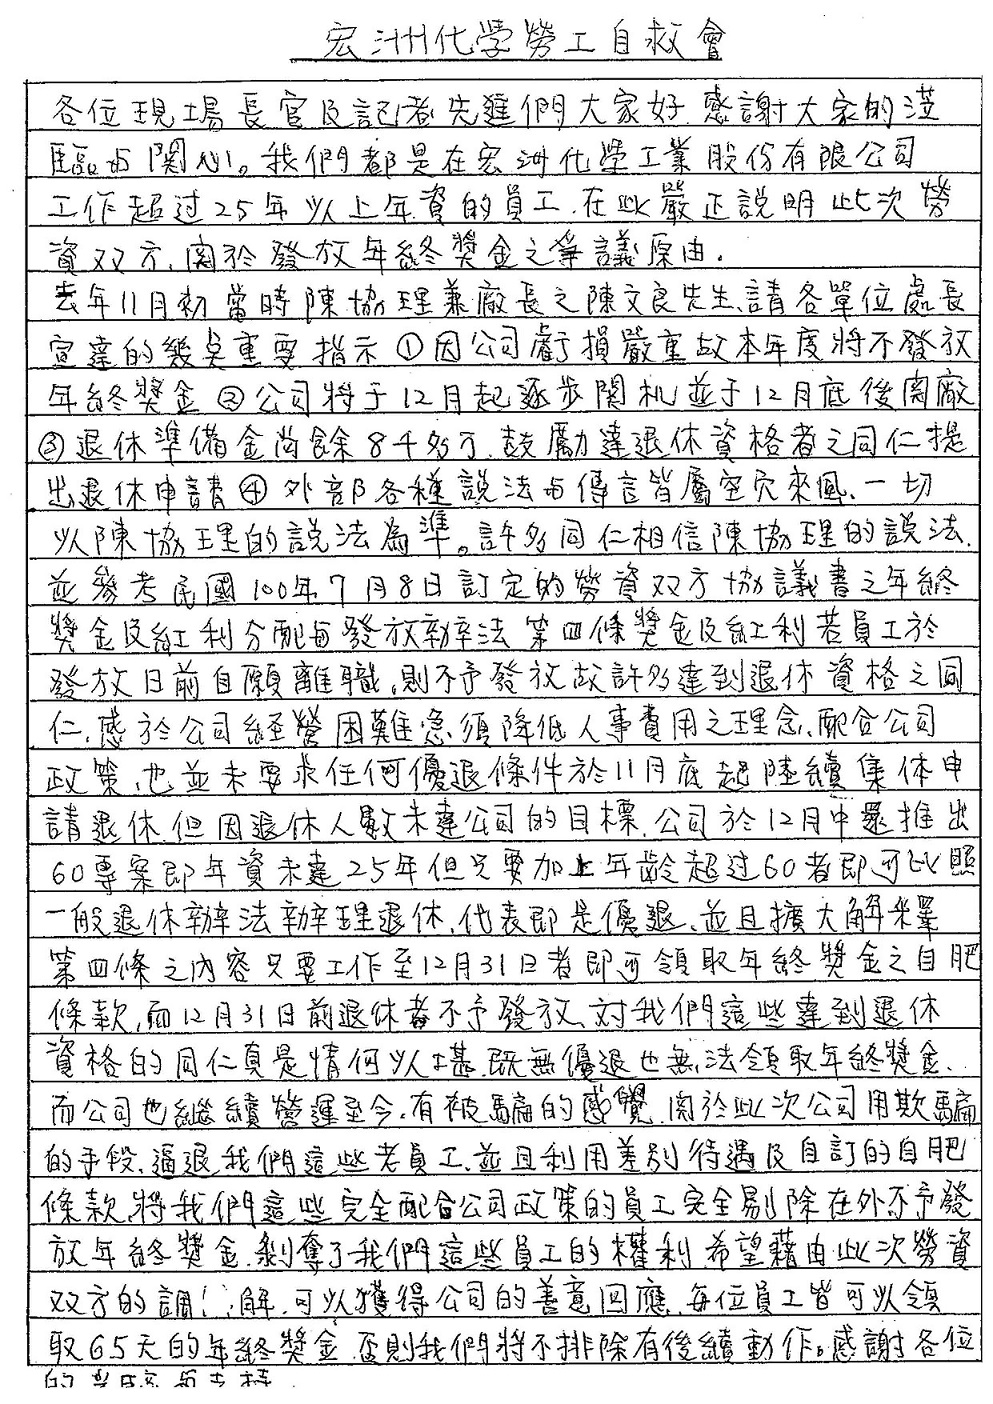 宏洲化学勞工自救會
各位現場長官及記者先進們大家好.感謝大家的蒞
臨与関心。我們都是在宏洲化學工業股份有限公司
工作超过25年以上年資的員工.在此嚴正說明此次勞
資双方、関於發放年終獎金之爭議原由.
去年11月初當時陳協理兼廠長之陳文良先生、請各單位處長
宣達的幾点重要指示①因公司虧損嚴重故本年度將不發放
年終獎金②公司將于12月起逐步関机並于12月底後関廠
③退休準備金尚餘8千多万.鼓勵達退休資格者之同仁提
出退休申請④外部各種說法与傳言皆屬空穴來風、一切
以陳協理的說法為準。許多同仁相信陳協理的說法.
並參考民國100年7月8日訂定的勞資双方協議書之年終
獎金及紅利分配与發放辦法 第四條獎金及紅利若員工於
發放日前自願離職,則不予發放故許多達到退休資格之同
仁,感於公司経營困難急須降低人事費用之理念,配合公司
政策,也並未要求任何優退條件於11月底起陸續集体申
請退休.但因退休人數未達公司的目標.公司於12月中還推出
60專案即年資未達25年但只要加上年齡超过60者即可比照
一般退休辦法辦理退休,代表即是優退、並且擴大解釋
第四條之內容只要工作至12月31日者即可領取年終獎金之自肥
條款,而12月31日前退休者不予發放、対我們這些達到退休
資格的同仁真是情何以堪.既無優退也無法領取年終獎金.
而公司也繼續營運至今.有被騙的感覺.関於此次公司用欺騙
的手段、逼退我們這些老員工.並且利用差別待遇及自訂的自肥
條款,將我們這些完全配合公司政策的員工完全剔除在外不予發
放年終獎金.剝奪了我們這些員工的權利希望藉由此次勞資
双方的調解,可以獲得公司的善意回應.每位員工皆可以領
取65天的年終獎金.否則我們將不排除有後續動作。感謝各位